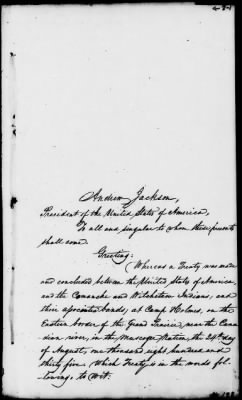 Andrew Jackson,
President of the United States of America,
To all and singular to whom these presents
shall come
Greeting:
Whereas a Treaty was made
and concluded between the United States of America,
and the Comanche and Witchetaw Indians, and
their associated bands, at Camp Holmes, on the
Eastern border of the Grand Prairie, near the Cana-
dian river, in the Muscogee Nation, the 24th day
of August, one thousand eight hundred and
thirty five, Which Treaty is in the words fol-
lowing to Wit.